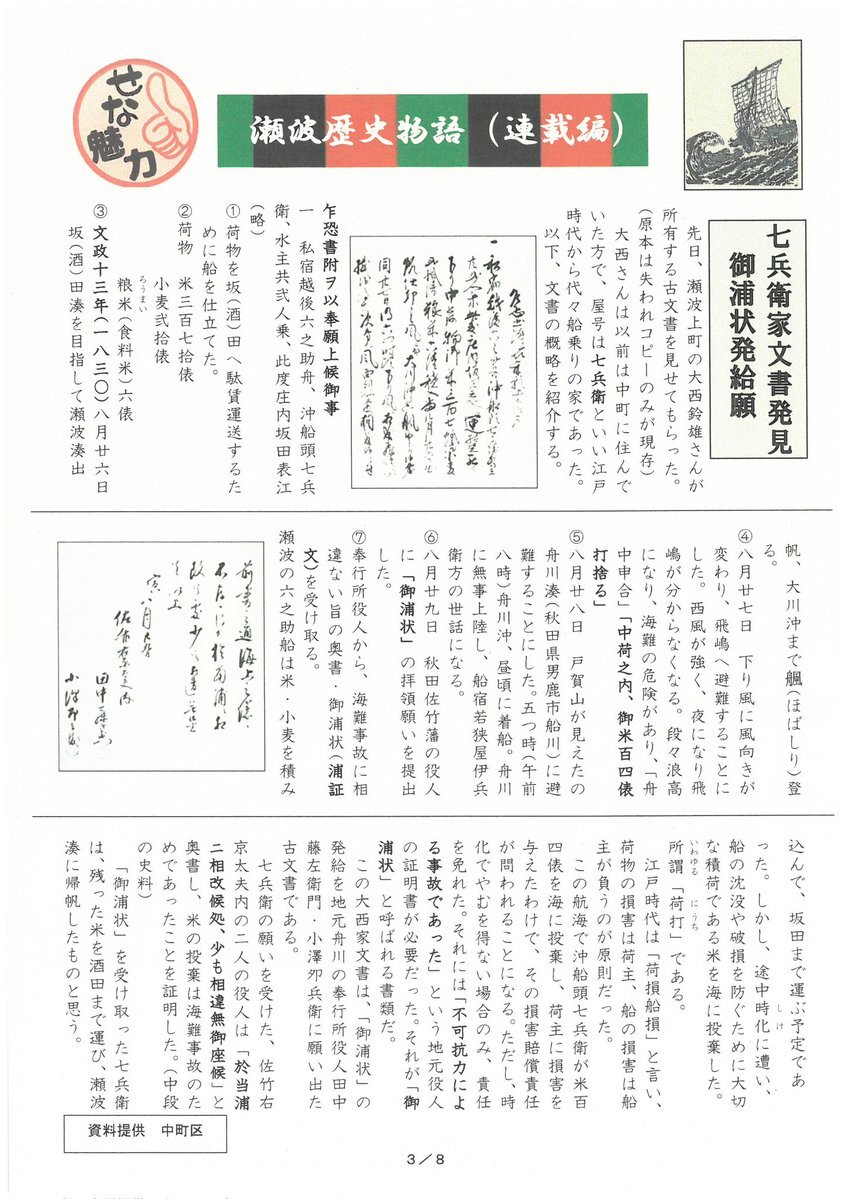 せな魅力
瀬波歴史物語（連載編）
七兵衛家文書発見
御浦状発給願
先日、瀬波上町の大西鈴雄さんが
所有する古文書を見せてもらった。
（原本は失われコピーのみが現存）
大西さんは以前は中町に住んで
いた方で、屋号は七兵衛といい江戸
時代から代々船乗りの家であった。
以下、文書の概略を紹介する。
乍恐書附ヲ以奉願上候御事
一　私宿越後六之助舟、沖船頭七兵
衛、水主共弐人乗、此度庄内坂田表江
（略）
①荷物を坂（酒）田へ駄賃運送するた
めに船を仕立てた。
②荷物　米三百七拾俵
小麦弐拾俵
粮米（食料米）六俵
ろうまい
③文政十三年（一八三〇）八月廿六日
坂（酒）田湊を目指して瀬波湊出
帆、大川沖まで颿（ほばしり）登
る。
④八月廿七日　下り風に風向きが
変わり、飛嶋へ避難することに
した。西風が強く、夜になり飛
嶋が分からなくなる。段々浪高
になり、海難の危険があり、「舟
中申合」「中荷之内、御米百四俵
打捨る」
⑤八月廿八日　戸賀山が見えたの
舟川湊（秋田県男鹿市船川）に避
難することにした。五つ時（午前
八時）舟川沖、昼頃に着船。舟川
に無事上陸し、船宿若狭屋伊兵
衛方の世話になる。
⑥八月廿九日　秋田佐竹藩の役人
に「御浦状」の拝領願いを提出
した。
⑦奉行所役人から、海難事故に相
違ない旨の奥書・御浦状（浦証
文）を受け取る。
瀬波の六之助船は米・小麦を積み
込んで、坂田まで運ぶ予定であ
った。しかし、途中時化に遭い、
しけ
船の沈没や破損を防ぐために大切
な積荷である米を海に投棄した。
いわゆる　にうち
所謂「荷打」である。
江戸時代は「荷損船損」と言い、
荷物の損害は荷主、船の損害は船
主が負うのが原則だった。
この航海で沖船頭七兵衛が米百
四俵を海に投棄し、荷主に損害を
与えたわけで、その損害賠償責任
が問われることになる。ただし、時
化でやむを得ない場合のみ、責任
を免れた。それには「不可抗力によ
る事故であった」という地元役人
の証明書が必要だった。それが「御
浦状」と呼ばれる書類だ。
この大西家文書は、「御浦状」の
発給を地元舟川の奉行所役人田中
藤左衛門・小澤夘兵衛に願い出た
古文書である。
七兵衛の願いを受けた、佐竹右
京太夫内の二人の役人は「於当浦
二相改候処、少も相違無御座候」と
奥書し、米の投棄は海難事故のた
めであったことを証明した。（中段
の史料）
「御浦状」を受け取った七兵衛
は、残った米を酒田まで運び、瀬波
湊に帰帆したものと思う。
資料提供　中町区
3／8